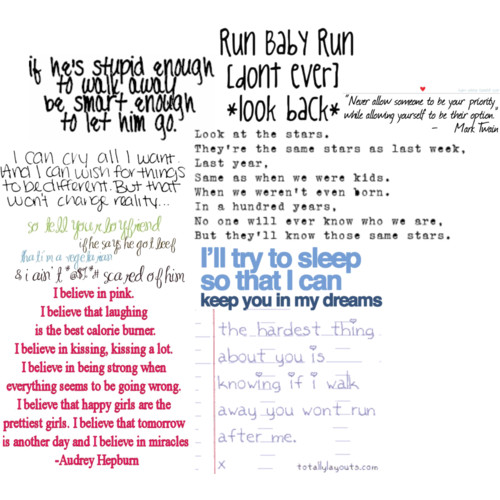 if he's stupid enough
to walk away
be smart enough
to let him go.
Run Baby Run
[dont ever]
*look back*
"Never allow someone to be your priority,
while allowing yourself to be their option."
- Mark Twain
Look at the stars.
They're the same stars as last week,
Last year,
Same as when we were kids.
When we weren't even born.
In a hundred years,
No one will ever know who we are,
But they'll know those same stars.
I can cry all I want.
And I can wish for things
to be different. But that
won't change reality...
so tell your boyfriend
if he says he got beef
that i'm a vegetarian
& i ain't *@$%*# scared of him
I'll try to sleep
so that I can
keep you in my dreams
I believe in pink.
I believe that laughing
is the best calorie burner.
I believe in kissing, kissing a lot.
I believe in being strong when
everything seems to be going wrong.
I believe that happy girls are the
prettiest girls. I believe that tomorrow
is another day and I believe in miracles
-Audrey Hepburn
the hardest thing
about you is
knowing if i walk
away you wont run
after me.
x
totallylayouts.com